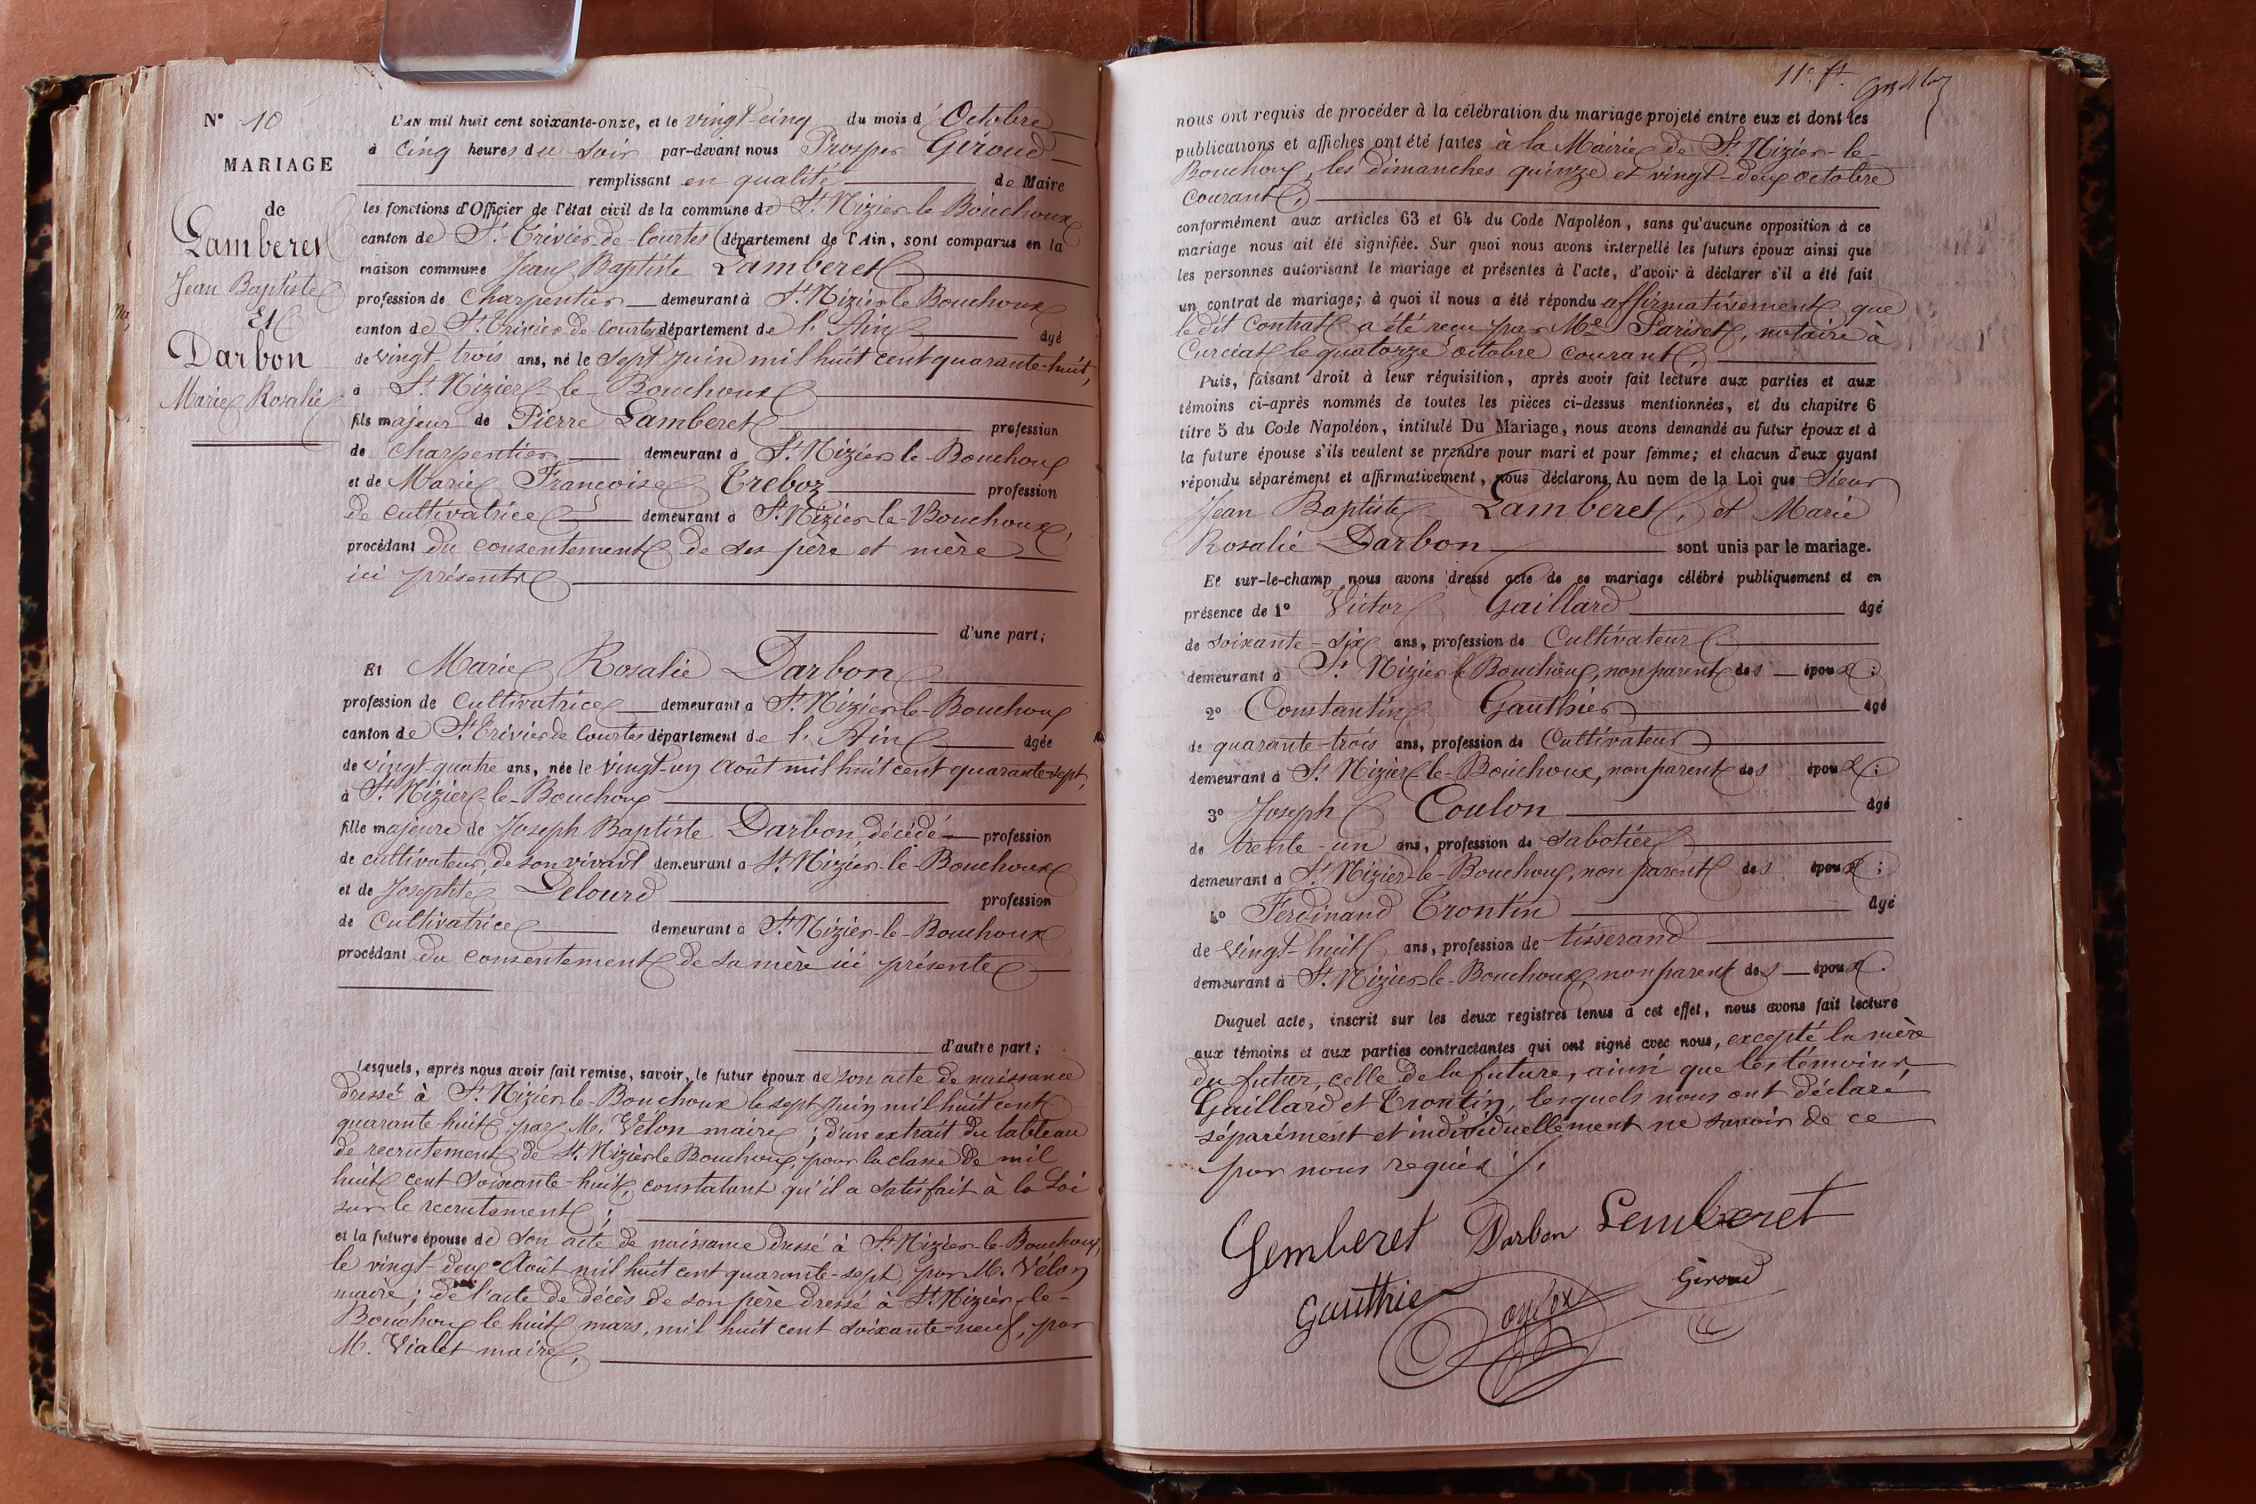 N° 10
MARIAGE
de
Lamberet
Jean Baptiste
Et
Darbon
Marie Rosalie
L'AN mil huit cent soixante-onze, et le vingt-cinq du mois d'Octobre
à cinq heures du soir par-devant nous Prosper Giroud
remplissant en qualité de Maire
les fonctions d'Officier de l'état civil de la commune de St Nizier le Bouchoux
canton de St Trivier de Courtes (département de l'Ain, sont comparus en la
maison commune Jean Baptiste Lamberet
profession de Charpentier demeurant à St Nizier le Bouchoux
canton de St Trivier de Courtes département de l'Ain âgé
de vingt-trois ans, né le sept juin mil huit cent quarante-huit,
à St Nizier-le-Bouchoux
fils majeur de Pierre Lamberet profession
de charpentier demeurant à St Nizier le Bouchoux
et de Marie Françoise Treboz profession
de cultivatrice demeurant à St Nizier-le-Bouchoux,
procédant du consentement de ses père et mère
ici présents
d'une part;
Et Marie Rosalie Darbon
profession de cultivatrice demeurant à St Nizier-le-Bouchoux
canton de St Trivier de Courtes département de l'Ain âgée
de vingt-quatre ans, née le vingt-un Août mil huit cent quarante-sept,
à St Nizier-le-Bouchoux
fille majeure de Joseph Baptiste Darbon, décédé profession
de cultivateur, de son vivant demeurant à St Nizier-le-Bouchoux
et de Josephte Delourd profession
de Cultivatrice demeurant à St Nizier-le-Bouchoux
procédant du consentement de sa mère ici présente
d'autre part;
Lesquels, après nous avoir fait remise, savoir, le futur époux de son acte de naissance
dressé à St Nizier-le-Bouchoux le sept juin mil huit cent
quarante huit, par M. Vélon maire; d'un extrait du tableau
de recrutement de St Nizier le Bouchoux, pour la classe de mil
huit cent soixante-huit, constatant qu'il a satisfait à la Loi
sur le recrutement;
et la future épouse de son acte de naissance dressé à St Nizier-le-Bouchoux,
le vingt-deux Août mil huit cent quarante-sept, par M. Vélon
maire; de l'acte de décès de son père dressé à St Nizier-le-
Bouchoux le huit mars, mil huit cent soixante-neuf, par
M. Vialet maire,
11e ft.
nous ont requis de procéder à la célébration du mariage projeté entre eux et dont les
publications et affiches ont été faites à la Mairie de St Nizier-le-
Bouchoux, les dimanches quinze et vingt-deux octobre
courant,
conformément aux articles 63 et 64 du Code Napoléon, sans qu'aucune opposition à ce
mariage nous ait été signifiée. Sur quoi nous avons interpellé les futurs époux ainsi que
les personnes autorisant le mariage et présentes à l'acte, d'avoir à déclarer s'il a été fait
un contrat de mariage; à quoi il nous a été répondu affirmativement que
le dit Contrat a été reçu par Me Pariset, notaire à
Curciat le quatorze octobre courant,
Puis, faisant droit à leur réquisition, après avoir fait lecture aux parties et aux
témoins ci-après nommés de toutes les pièces ci-dessus mentionnées, et du chapitre 6
titre 5 du Code Napoléon, intitulé Du Mariage, nous avons demandé au futur époux et à
la future épouse s'ils veulent se prendre pour mari et pour femme; et chacun d'eux ayant
répondu séparément et affirmativement, nous déclarons Au nom de la Loi que Sieur
Jean Baptiste Lamberet, et Marie
Rosalie Darbon sont unis par le mariage.
Et sur-le-champ nous avons dressé acte de ce mariage célébré publiquement et en
présence de 1° Victor Gaillard âgé
de soixante-six ans, profession de Cultivateur
demeurant à St Nizier le Bouchoux, non parent des époux;
2° Constantin Gauthier âgé
de quarante-trois ans, profession de Cultivateur
demeurant à St Nizier-le-Bouchoux, non parent des époux;
3° Joseph Coulon âgé
de trente-un ans, profession de sabotier
demeurant à St Nizier-le-Bouchoux, non parent des époux;
4° Ferdinand Trontin âgé
de vingt-huit ans, profession de tisserand
demeurant à St Nizier-le-Bouchoux, non parent des époux.
Duquel acte, inscrit sur les deux registres tenus à cet effet, nous avons fait lecture
aux témoins et aux parties contractantes qui ont signé avec nous, excepté la mère
du futur, celle de la future, ainsi que les témoins
Gaillard et Trontin, lesquels nous ont déclaré
séparément et individuellement ne savoir de ce
par nous requis ./.
Lemberet Darbon Lemberet
Gauthier Giroud